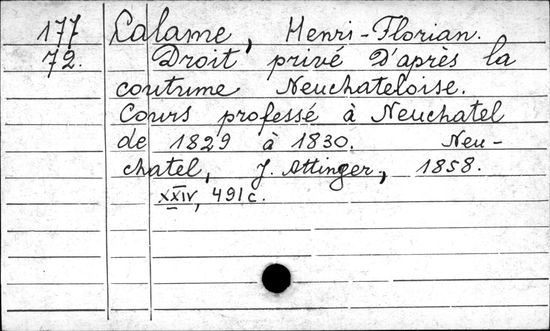 177 Calame, Henri-Florian.
72. Droit privé d'après la
coutume Neuchateloise.
Cours professé à Neuchatel
de 1829 à 1830. Neu-
chatel, J. Attinger, 1858.
XXIV, 491 c.